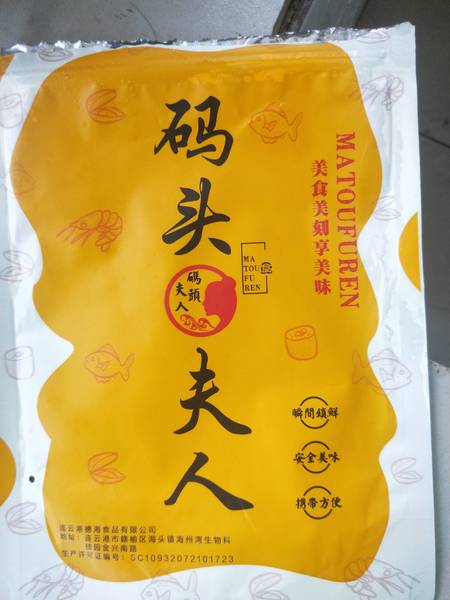 码头夫人
MATOUFUREN
美食美刻享美味
MA
TOU
FU
REN
碼頭
夫人
瞬間鎖鮮
安全美味
携帶方便
连云港德海食品有限公司
地址：连云港市赣榆区海头镇海州湾生物科
技园金兴南路
生产许可证编号：SC10932072101723